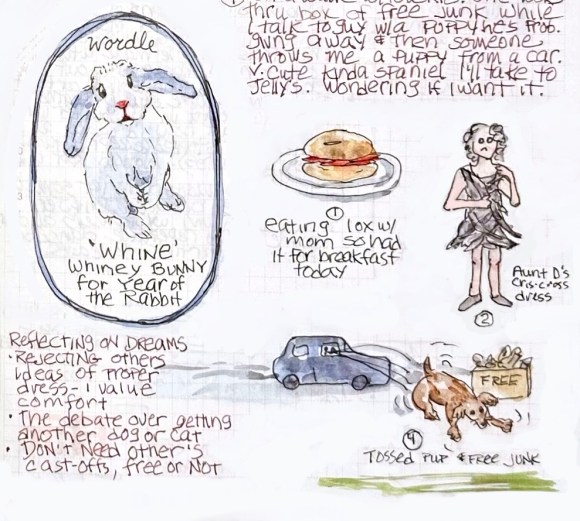 thru box of free junk while
I talk to guy w/a puppy he's prob.
giving away & then someone
throws me a puppy from a car.
V. cute kinda spaniel I'll take to
Jelly's. Wondering if I want it.
wordle
'WHINE'
WHINEY BUNNY
for YEAR of
the Rabbit
1
eating lox w/
mom so had
it for breakfast
today
Aunt D's
Cris-cross
dress
2
Reflecting on Dreams
• Rejecting others
ideas of proper
dress - I value
comfort
• The debate over getting
another dog or cat
• Don't need other's
cast-offs, free or not
FREE
4
Tossed Pup & Free Junk